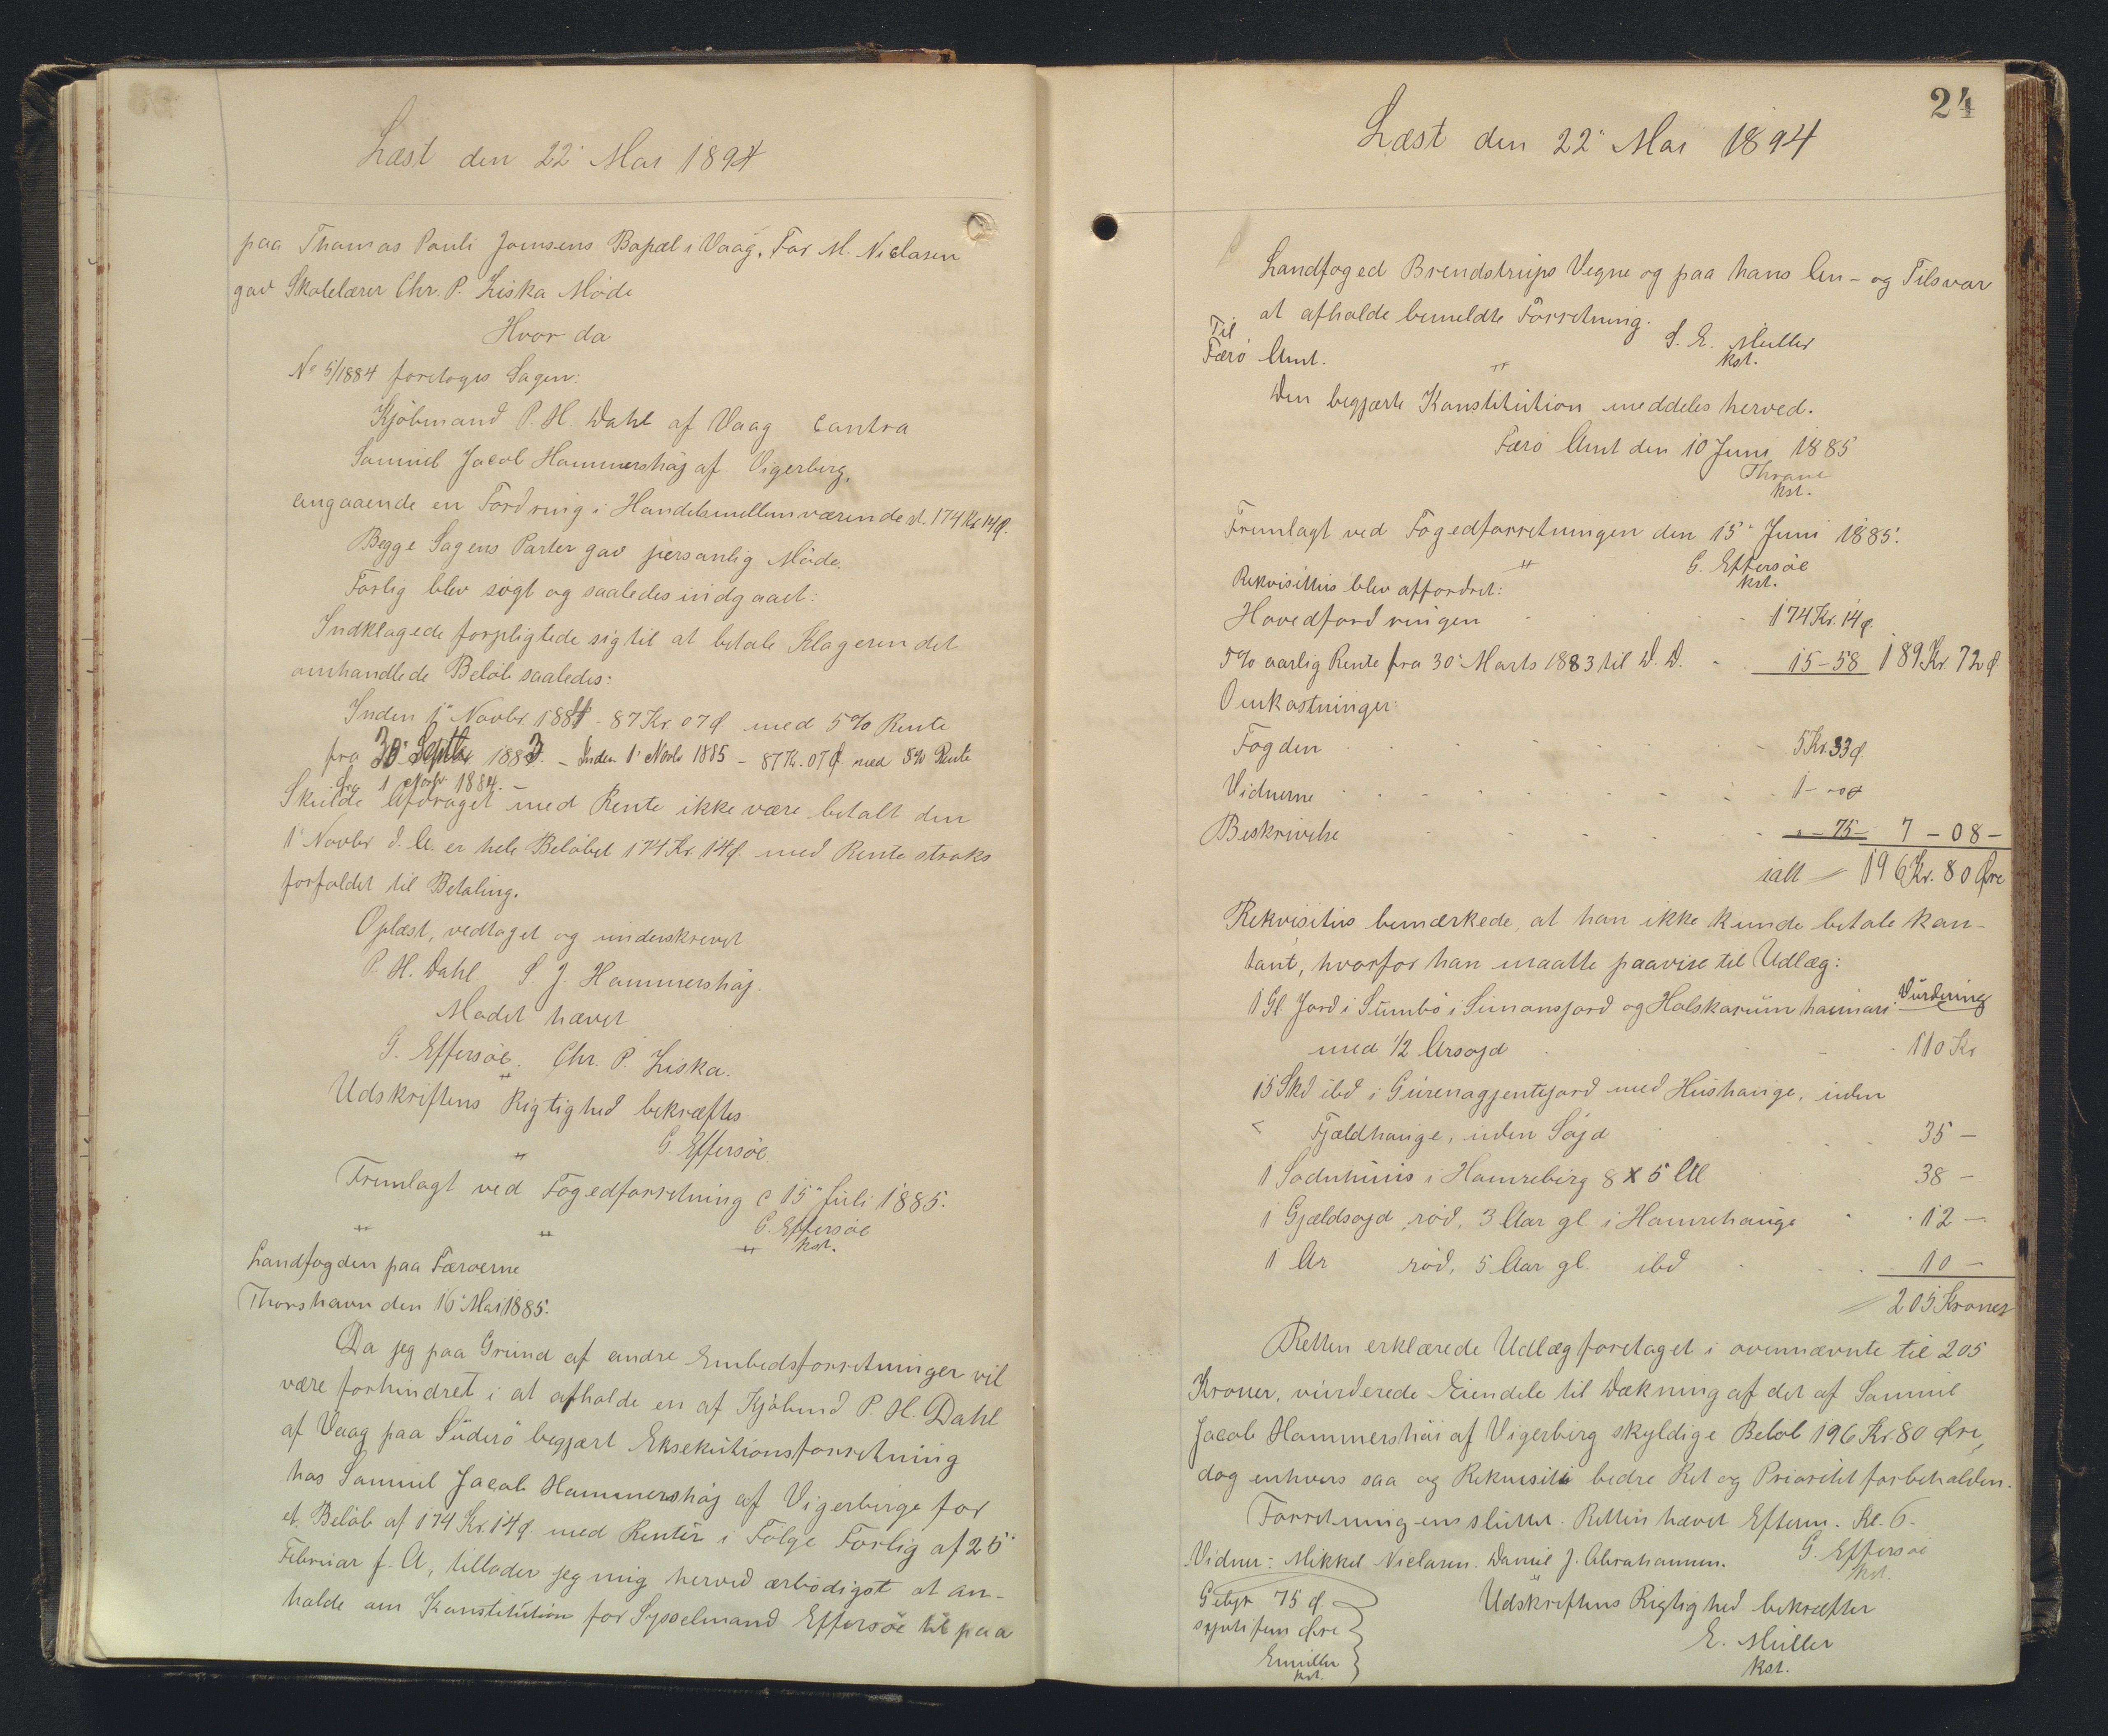 Læst den 22' Mai 1894
paa Thomas Pouli Joensens Bopæl i Vaag. For M. Niclasen
gav Skolelærer Chr. P. Ziska Møde
Hvor da
No 5/1884 foretoges Sagen:
Kjøbmand P. H. Dahl af Vaag Contra
Samuel Jacob Hammershøj af Vigerberg,
angaaende en Fordring i Handelsmellemværende st. 174 Kr 14 Ø.
Begge Sagens Parter gav personlig Møde.
Forlig blev søgt og saaledes indgaaet:
Indklagede forpligtede sig til at betale Klageren det
omhandlede Beløb saaledes:
Inden 1' Novbr 1884 - 87 Kr 07 Ø med 5% Rente
fra 30' Septbr 1883. - Inden 1' Novb 1885 - 87 Kr. 07 Ø med 5% Rente
fra 1 Novbr 1884.
Skulde Afdraget med Rente ikke være betalt den
1' Novbr d. A. er hele Beløbet 174 Kr. 14 Ø. med Rente straks
forfaldet til Betaling.
Oplæst, vedtaget og underskrevet
P. H. Dahl S. J. Hammershøj.
Mødet hævet
G. Effersøe. Chr. P. Ziska.
Udskriftens Rigtighed bekræftes
G. Effersøe.
Fremlagt ved Fogedforretning d 15" Juli 1885.
G. Effersøe
kst.
Landfogden paa Færøerne
Thorshavn den 16' Mai 1885.
Da jeg paa Grund af andre Embedsforretninger vil
være forhindret i at afholde en af Kjøbmd P. H. Dahl
af Vaag paa Suderø begjært Eksekutionsforretning
hos Samuel Jacob Hammershøj af Vigerbirge for
et Beløb af 174 Kr. 14 Ø. med Renter i Følge Forlig af 25'
Februar f. A, tillader jeg mig herved ærbødigst at an-
holde om Konstitution for Sysselmand Effersøe til paa
24
Læst den 22" Mai 1894
Landfoged Brendstrups Vegne og paa hans An- og Tilsvar
at afholde bemeldte Forretning.
S. E. Müller
kst.
Til
Færø Amt.
Den begjærte Konstitution meddeles herved.
Færø Amt den 10 Juni 1885
Thrane
kst.
Fremlagt ved Fogedforretningen den 15" Juni 1885.
G. Effersøe
kst.
Rekvisitus blev affordret:
Hovedfordringen 174 Kr. 14 Ø.
5% aarlig Rente fra 30' Marts 1883 til D. D. 15 - 58 189 Kr. 72 Ø
Omkostninger:
Fogden 5 Kr. 33 Ø.
Vidnerne 1 - 00
Beskrivelse - 75 - 7 - 08 -
ialt 196 Kr. 80 Øre
Rekvisitus bemærkede, at han ikke kunde betale kon-
tant, hvorfor han maatte paavise til Udlæg:
Vurdering
1 Gl. Jord i Sumbø i Simonsjord og Holskarum hainari
med 1/2 Arsojd 110 Kr
15 Skd ibd i Gurenagjentejord med Hushauge, uden
Fjeldhauge, uden Sojd 35 -
1 Sodnhuus i Hamrebirg 8 x 5 Al 38 -
1 Gjældsojd, rød, 3 Aar gl. i Hamrehauge 12 -
1 Ar rød, 5 Aar gl. ibd 10 -
205 Kroner
Retten erklærede Udlæg foretaget i ovennævnte til 205
Kroner, vurderede Eiendele til Dækning af det af Samuel
Jacob Hammershøi af Vigerbirg skyldige Beløb 196 Kr 80 Øre,
dog enhvers saa og Rekvisiti bedre Ret og Prioritet forbeholden.
Forretningen sluttet. Retten hævet Efterm. Kl. 6.
G. Effersøe
kst.
Vidner: Mikkel Niclasen. Daniel J. Abrahamsen.
Udskriftens Rigtighed bekræfter
E. Müller
kst.
Gebyr 75 Ø.
syvtifem Øre
EMüller
kst.